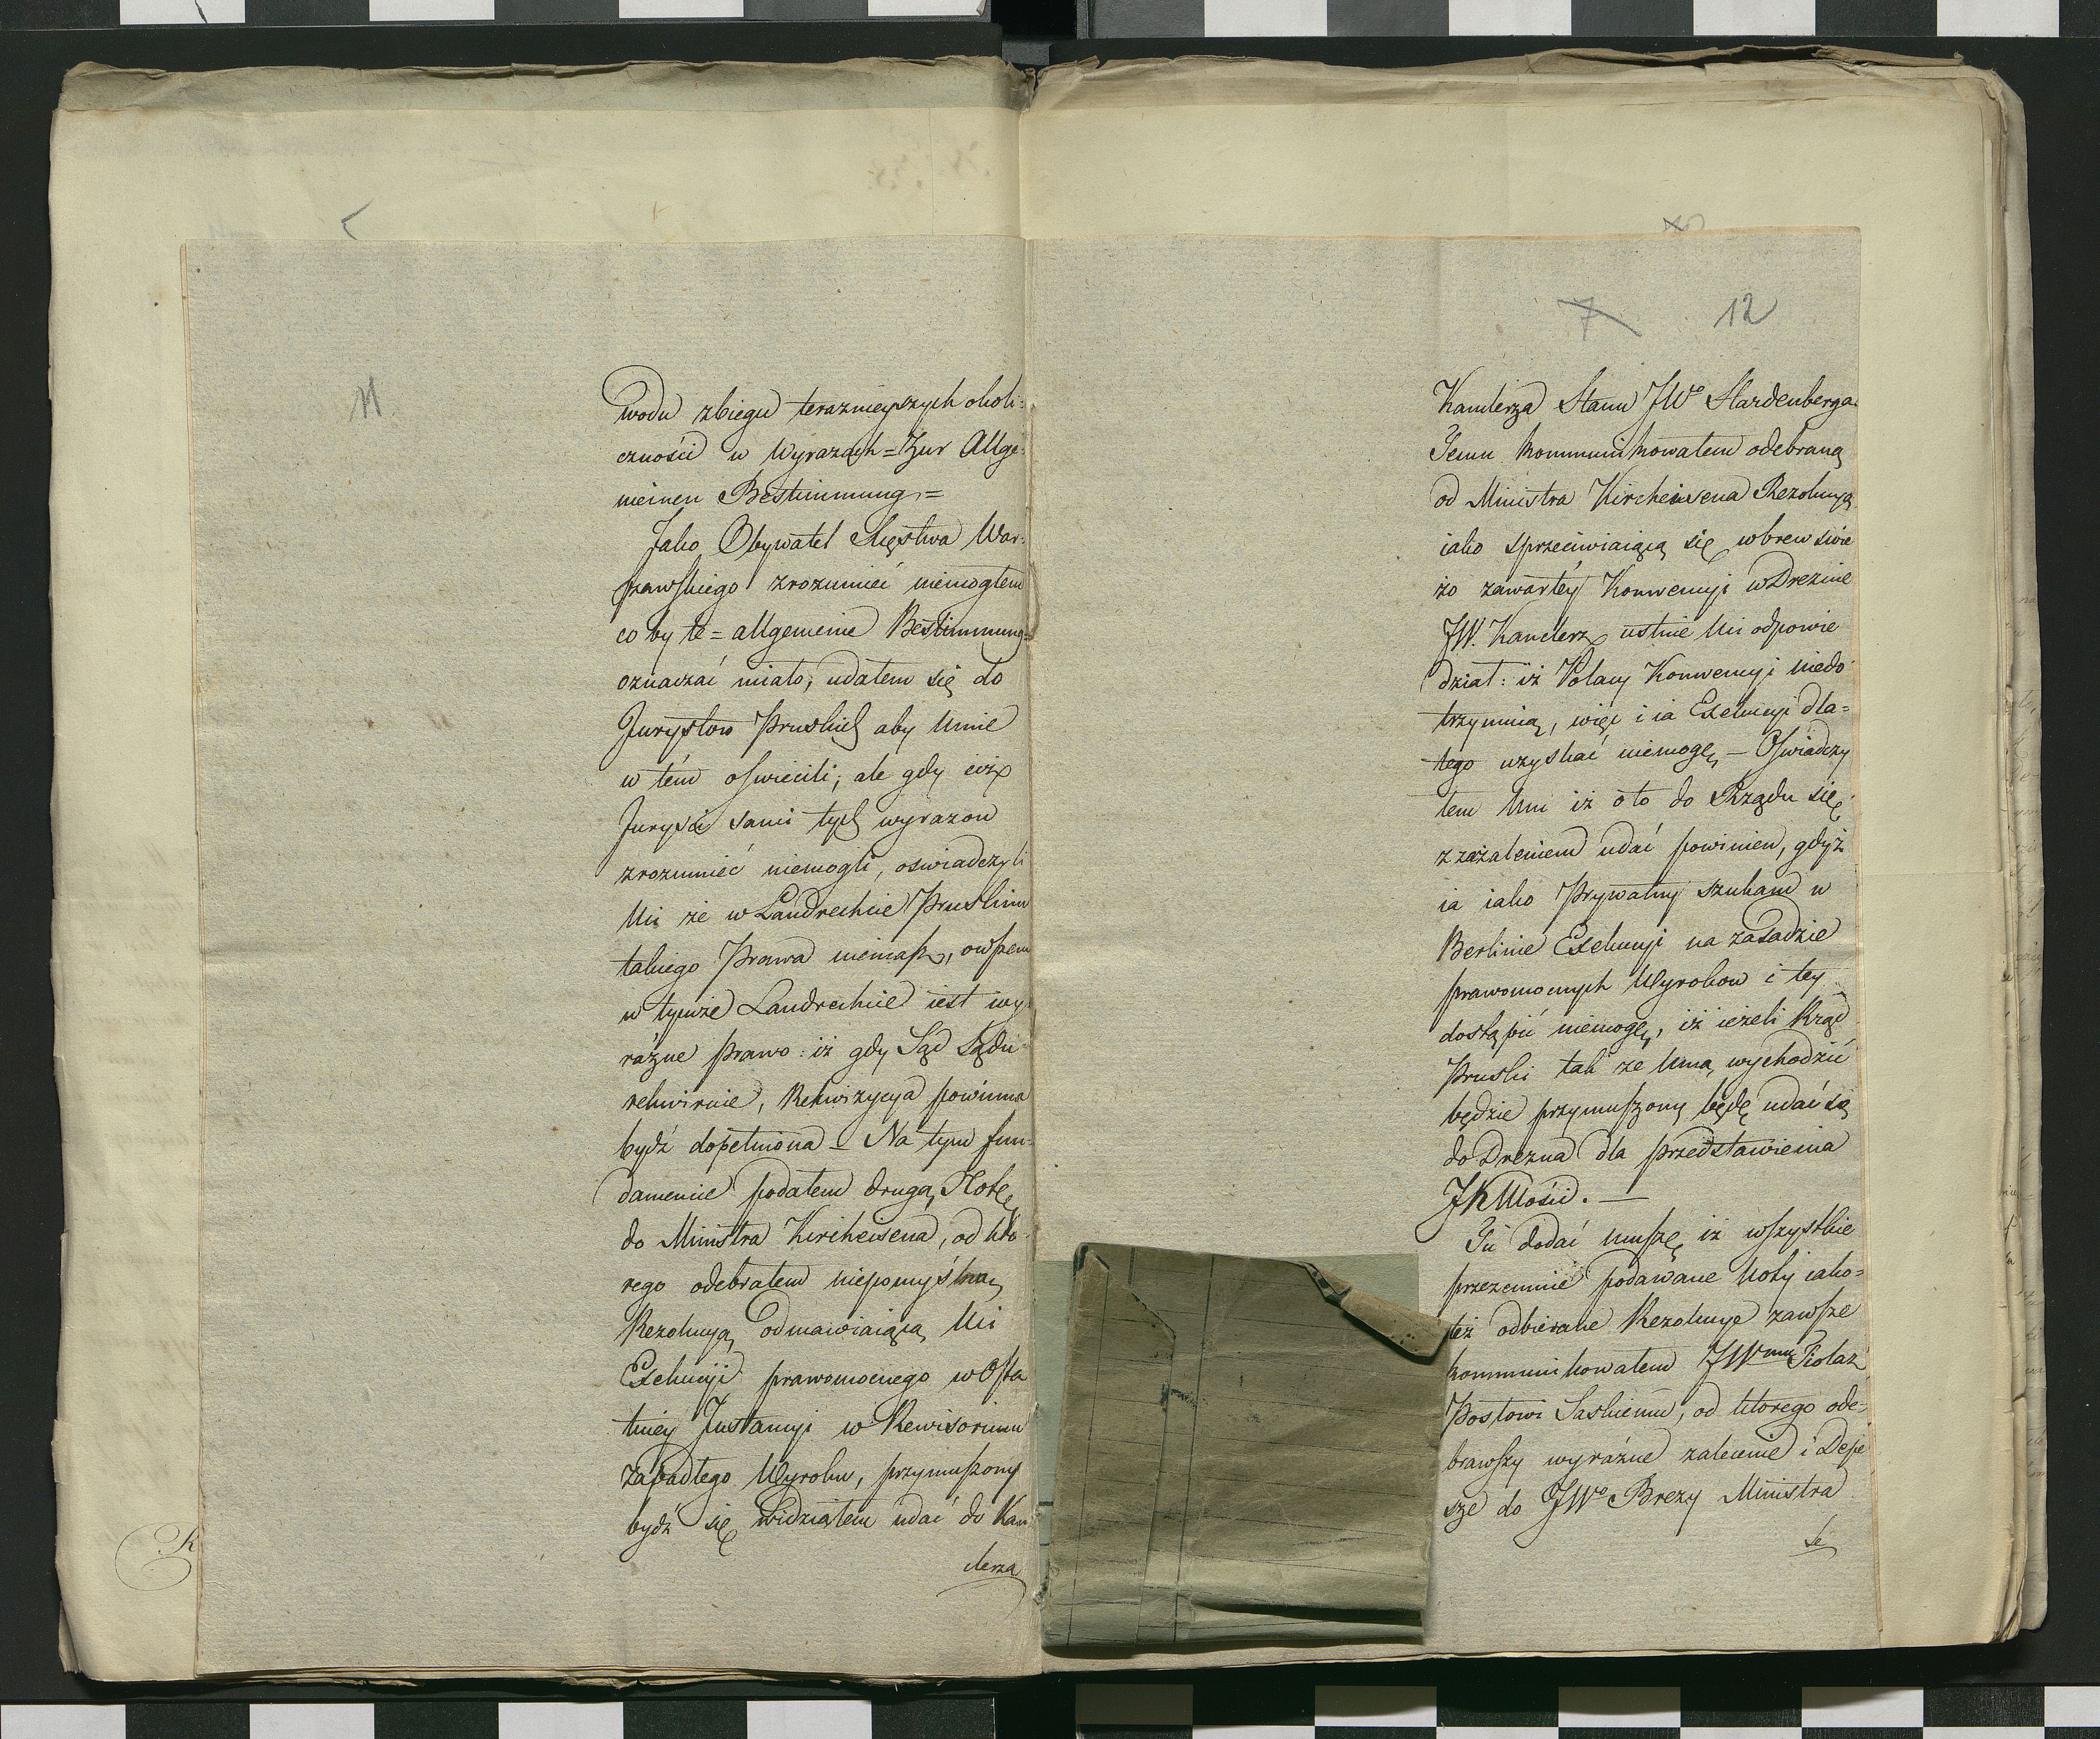 11
wodu zbiegu teraznieyszych okoli=
cznośći w Wyrazach = Zur Allge=
meinen Bestimmung =
Jako Obywatel Xięstwa War=
szawskiego zrozumieć niemogłem
co by te = allgemeine Bestimmung =
oznaczać miało, udałem się do
Jurystow Pruskich aby Mnie
w tém oświecili; ale gdy ciż
Juryści sami tych wyrazow
zrozumieć niemogli, oswiadczyli
Mi że w Landrechcie Pruskim
takiego Prawa niemasz, owszem
w tymże Landrechcie iest wy=
raźne prawo: iż gdy Sąd Sądu
rekwiruie, Rekwizycya powinna
bydź dopełniona – Na tym fun=
damencie podałem drugą Notę
do Ministra Kircheisena, od któ=
rego odebrałem niepomyślną
Rezolucyą odmawiaiącą Mi
Exekucyi prawomocnego w Osta
tniey Instancyi w Rewisorium
zapadłego Wyroku, przymuszony
bydź się widziałem udać do Kan
clerza
7 12
Kanclerza Stanu JWo Hardenberga.
Temu kommunikowałem odebraną
od Ministra Kircheisena Rezolucyą
iako sprzeciwiaiącą się wbrew świe
żo zawartéy Konwencyi w Dreznie
JW. Kanclerz ustnie Mi odpowie
dział: iż Polacy Konwencyi niedo
trzymią, więc i ia Exekucyi dla=
tego uzyskać niemogę – Oświadczy
łem Mu iż o to do Rządu się
z zażaleniem udać powinien, gdyż
ia iako Prywatny szukam w
Berlinie Exekucyi na zasadzie
prawomocnych Wyrokow i tey
dostąpić niemogę, iż ieżeli Rząd
Pruski tak ze Mną wychodzić
będzie przymuszony będę udać się
do Drezna dla przedstawienia
JKMości. —
Tu dodać muszę iż wszystkie
przezemnie podawane Noty iako=
też odbierane Rezolucye zawsze
kommunikowałem JWmu Tiolaz
Posłowi Saskiemu, od ktorego ode=
brawszy wyraźne zalecenie i Depe
sze do JWo Brezy Ministra
Se